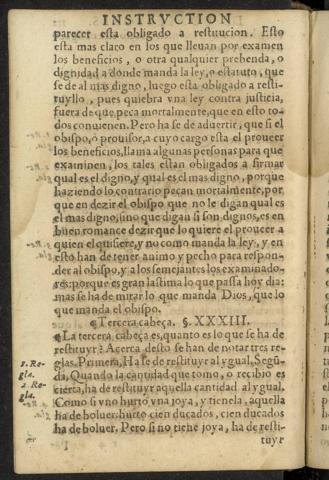 INSTRVCTION
parecer esta obligado a restitucion. Esto
esta mas claro en los que lleuan por examen
los beneficios, o otra qualquier prebenda, o
dignidad a donde manda la ley, o estatuto, que
se de al mas digno, luego esta obligado a resti-
tuyllo, pues quiebra vna ley contra justicia,
fuera de que peca mortalmente, que en esto to-
dos conuienen. Pero ha se de aduertir, que si el
obispo, ò prouisor, a cuyo cargo esta el proueer
los beneficios, llama algunas personas para que
examinen, los tales estan obligados a firmar
qual es el digno, y qual es el mas digno, porque
haziendo lo contrario pecan mortalmente, por
que en dezir el obispo que no le digan qual es
el mas digno, sino que digan si son dignos, es en
buen romance dezir que lo quiere el proueer a
quien el quisiere, y no como manda la ley, y en
esto han de tener animo y pecho para respon-
der al obispo, y a los semejantes los examinado-
res: porque es gran lastima lo que passa hoy dia:
mas se ha de mirar lo que manda Dios, que lo
que manda el obispo.
¶ Tercera cabeça. §. XXXIII.
¶ La tercera cabeça es, quanto es lo que se ha de
restituyr? Acerca desto se han de notar tres re-
1. Re-
glas. Primera, Ha se de restituyr al ygual. Segũ-
gla.
da, Quando la cantidad que tomo, o recibio es
2. Re-
cierta, ha de restituyr aquella cantidad al ygual.
gla.
Como si vno hurto vna joya, y tienela, aquella
ha de boluer: hurto cien ducados, cien ducados
ha de boluer. Pero si no tiene joya, ha de resti-
tuyr